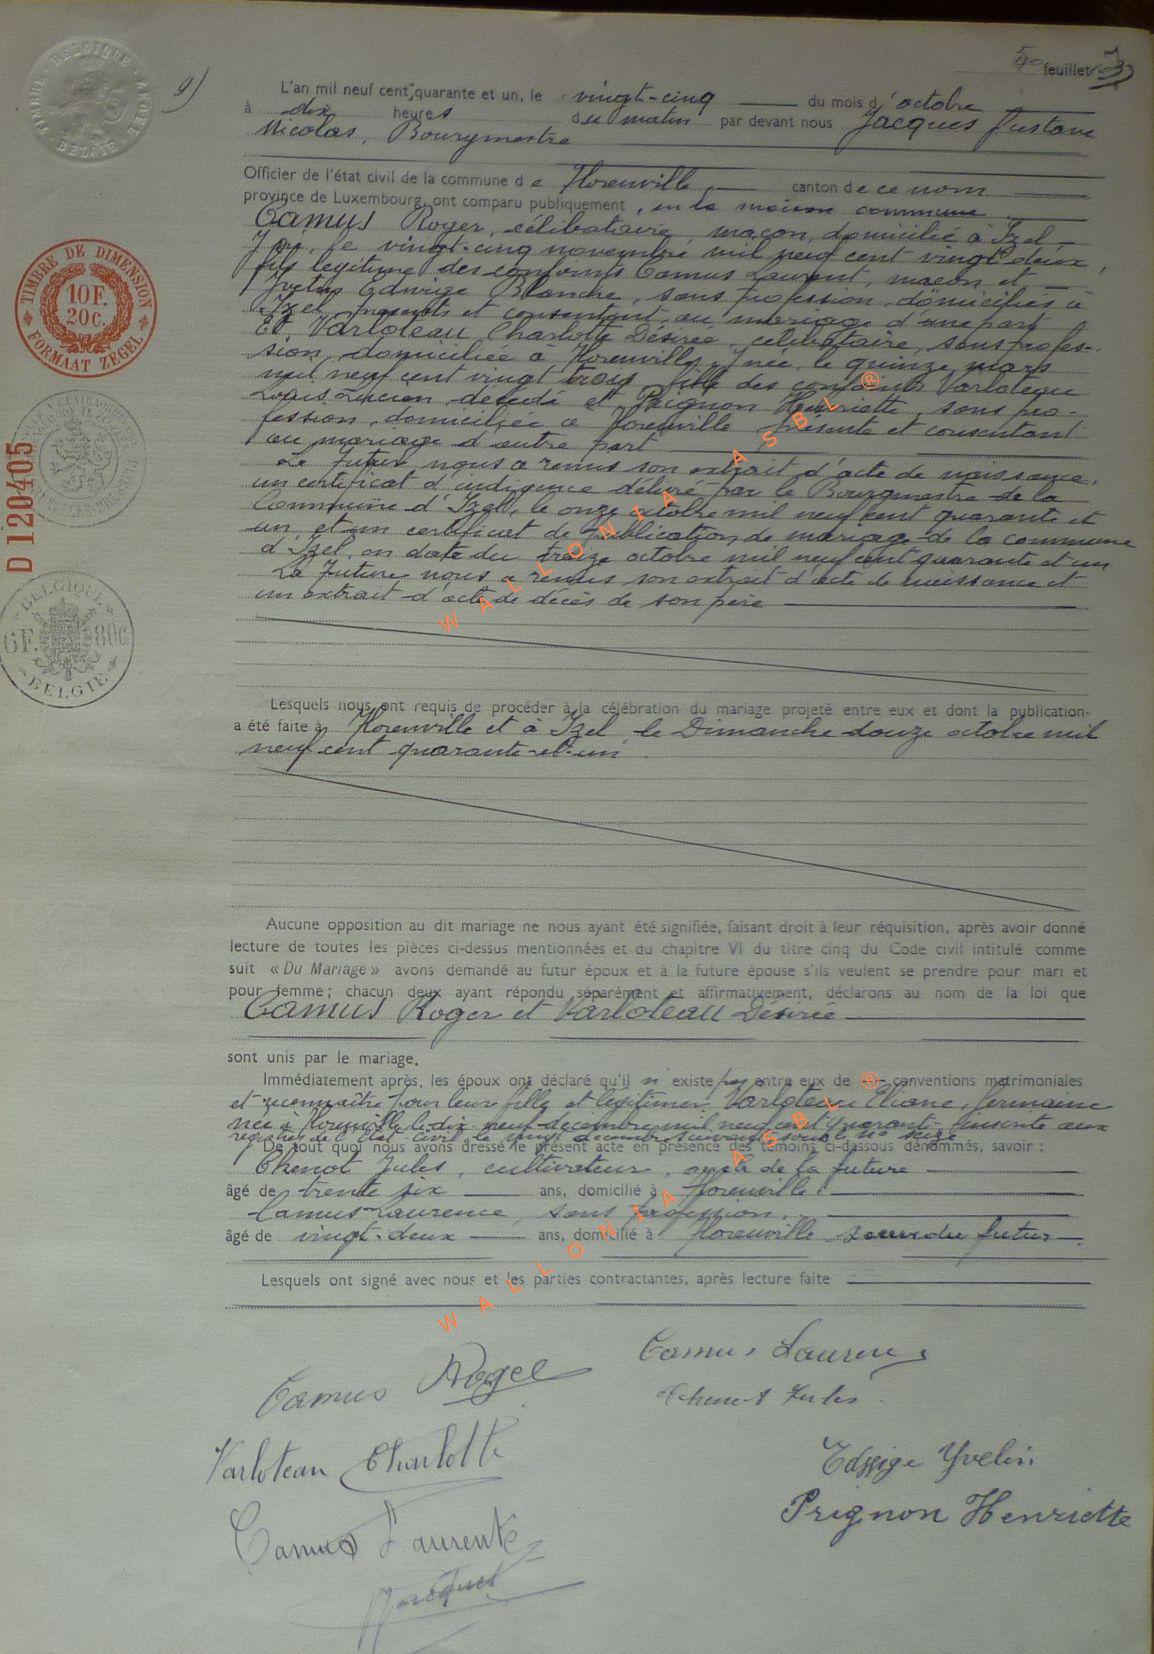 5e feuillet
9)
L'an mil neuf cent quarante et un, le vingt-cinq du mois d'octobre
à dix heures du matin par devant nous Jacques Gustave
Nicolas, Bourgmestre
Officier de l'état civil de la commune de Florenville, canton de ce nom
province de Luxembourg, ont comparu publiquement, en la maison commune
Camus Roger, célibataire, maçon, domicilié à Izel
y né, le vingt-cinq novembre mil neuf cent vingt deux,
fils légitime des conjoints Camus Laurent, maçon et
Yvelin Edwige Blanche, sans profession, domiciliés à
Izel, présents et consentant au mariage d'une part
Et Varloteau Charlotte Désirée, célibataire, sans profes-
sion, domiciliée à Florenville, y née, le quinze mars
mil neuf cent vingt trois, fille des conjoints Varloteau
Louis Lucien décédé et Prignon Henriette, sans pro-
fession, domiciliée à Florenville présente et consentant
au mariage d'autre part
Le futur nous a remis son extrait d'acte de naissance,
un certificat d'indigence délivré par le Bourgmestre de la
Commune d'Izel, le onze octobre mil neuf cent quarante et
un et un certificat de publication de mariage de la commune
d'Izel, en date du treize octobre mil neuf cent quarante et un
La future nous a remis son extrait d'acte de naissance et
un extrait d'acte de décès de son père
Lesquels nous ont requis de procéder à la célébration du mariage projeté entre eux et dont la publication
a été faite à Florenville et à Izel le Dimanche douze octobre mil
neuf cent quarante-et-un.
Aucune opposition au dit mariage ne nous ayant été signifiée, faisant droit à leur réquisition, après avoir donné
lecture de toutes les pièces ci-dessus mentionnées et du chapitre VI du titre cinq du Code civil intitulé comme
suit « Du Mariage » avons demandé au futur époux et à la future épouse s'ils veulent se prendre pour mari et
pour femme; chacun deux ayant répondu séparément et affirmativement, déclarons au nom de la loi que
Camus Roger et Varloteau Désirée
sont unis par le mariage.
Immédiatement après, les époux ont déclaré qu'il n'existe pas entre eux de conventions matrimoniales
et reconnaître pour leur fille et légitimer Varloteau Eliane, Germaine
née à Florenville le dix neuf décembre mil neuf cent quarant inscrite aux
registres de l'Etat-Civil le vingt décembre suivant sous le no seize
De tout quoi nous avons dressé le présent acte en présence des témoins ci-dessous dénommés, savoir :
Chenot Jules, cultivateur, oncle de la future
âgé de trente six ans, domicilié à Florenville
Camus Laurence, sans profession,
âgé de vingt-deux ans, domicilié à Florenville soeur du futur
Lesquels ont signé avec nous et les parties contractantes, après lecture faite
Camus Roger
Camus Laurence
Chenot Jules
Varloteau Charlotte
Edwige Yvelin
Prignon Henriette
Camus Laurent
Jacques
TIMBRE DE DIMENSION
10F.
20C.
FORMAAT ZEGEL
D 120405
BELGIQUE
6F. 80C
BELGIE
WALLONIA ASBL ®
WALLONIA ASBL ®